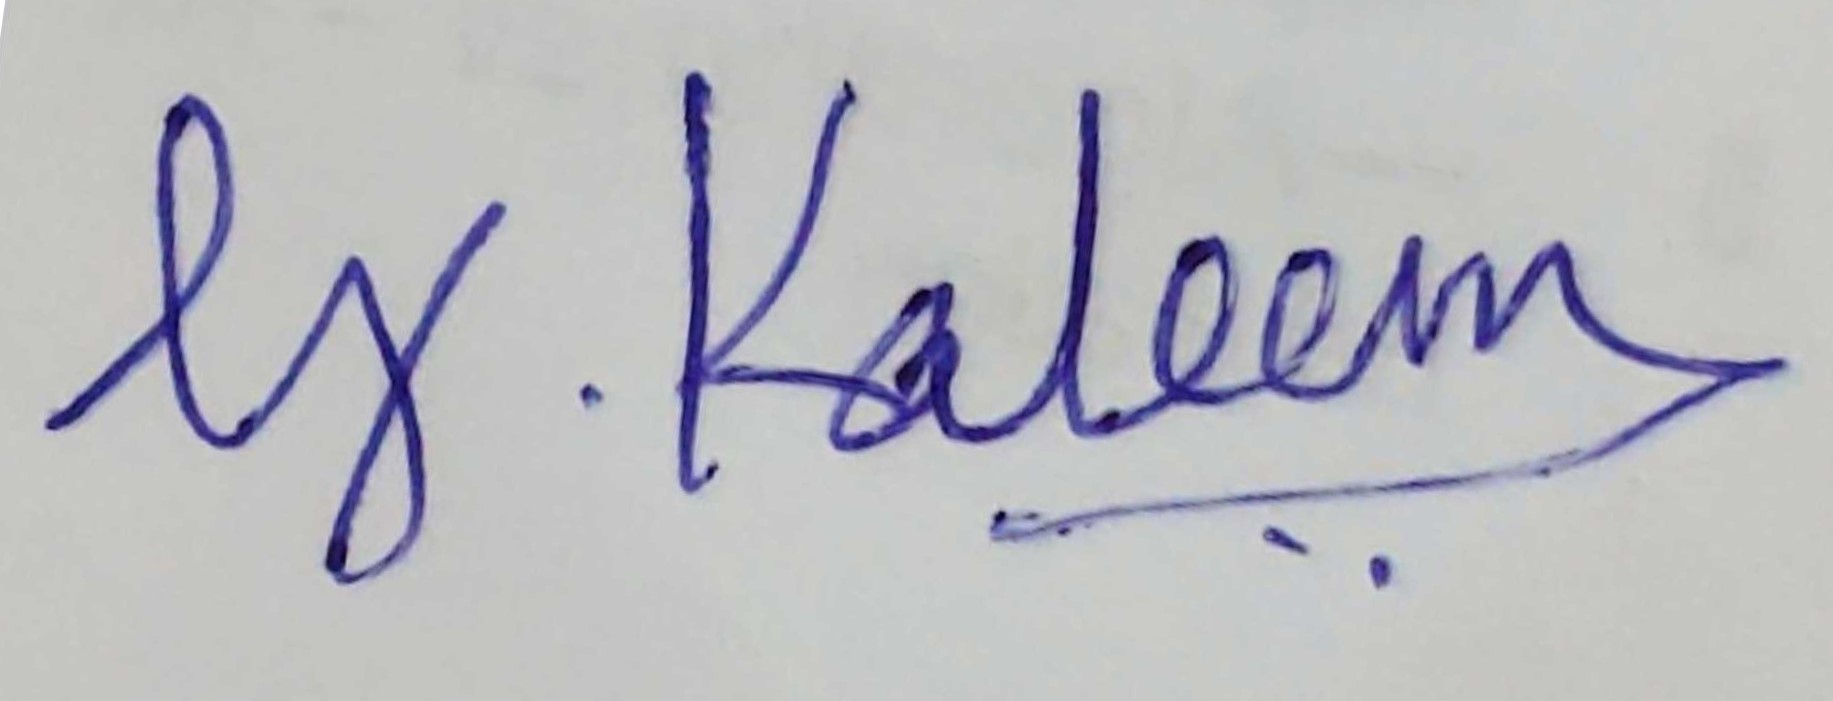 Sy. Kaleem